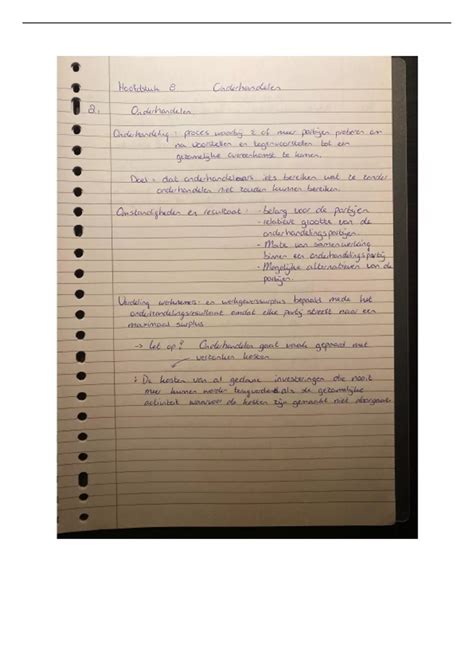 Hoofdstuk 8 Onderhandelen
2. Onderhandelen
Onderhandeling : proces waarbij 2 of meer partijen proberen om
na voorstellen en tegenvoorstellen tot een
gezamelijke overeenkomst te komen.
Doel : dat onderhandelaars iets bereiken wat ze zonder
onderhandelen niet zouden kunnen bereiken.
Omstandigheden en resultaat : - belang voor de partijen
- relatieve grootte van de
onderhandelingspartijen
- Mate van samenwerking
binnen een onderhandelingspartij
- Mogelijke alternatieven van de
partijen.
Verdeling werknemers- en werkgeverssurplus bepaald mede het
onderhandelingsresultaat omdat elke partij streeft naar een
maximaal surplus
→ let op! Onderhandelen gaat vaak gepaard met
verzonken kosten
: De kosten van al gedane investeringen die nooit
meer kunnen worden terugverdiend als de gezamelijke
activiteit waarvoor de kosten zijn gemaakt niet doorgaat.